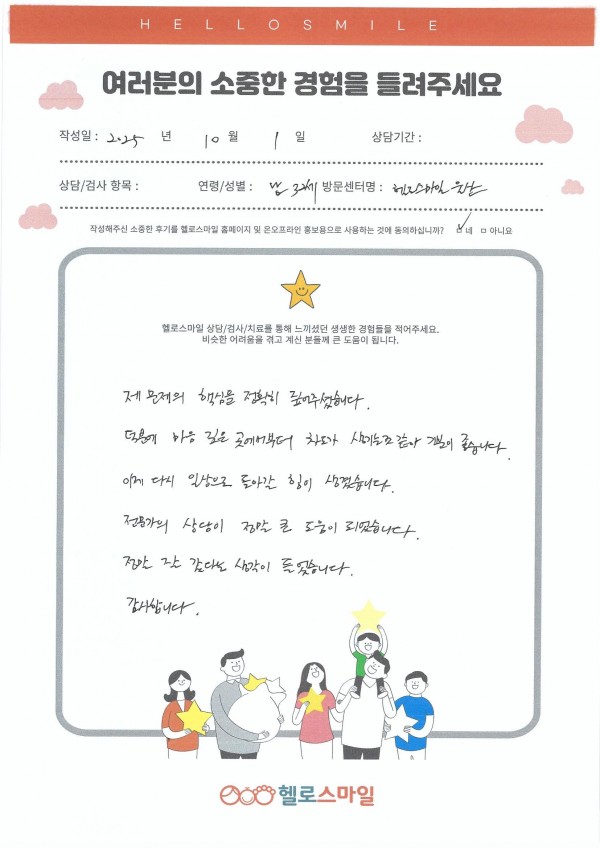 HELLOSMILE
여러분의 소중한 경험을 들려주세요
작성일 : 2025 년 10 월 1 일 상담기간 :
상담/검사 항목 : 연령/성별 : 남 32세 방문센터명 : 헬로스마일
작성해주신 소중한 후기를 헬로스마일 홈페이지 및 온오프라인 홍보용으로 사용하는 것에 동의하십니까? ㅁ네 ㅁ아니요
헬로스마일 상담/검사/치료를 통해 느끼셨던 생생한 경험들을 적어주세요.
비슷한 어려움을 겪고 계신 분들께 큰 도움이 됩니다.
제 문제의 핵심을 정확히 짚어주셨습니다.
덕분에 마음 깊은 곳에서부터 차도가 생기는것 같아 기분이 좋습니다.
이제 다시 일상으로 돌아갈 힘이 생겼습니다.
전문가의 상담이 정말 큰 도움이 되었습니다.
정말 잘 갔다는 생각이 들었습니다.
감사합니다.
헬로스마일